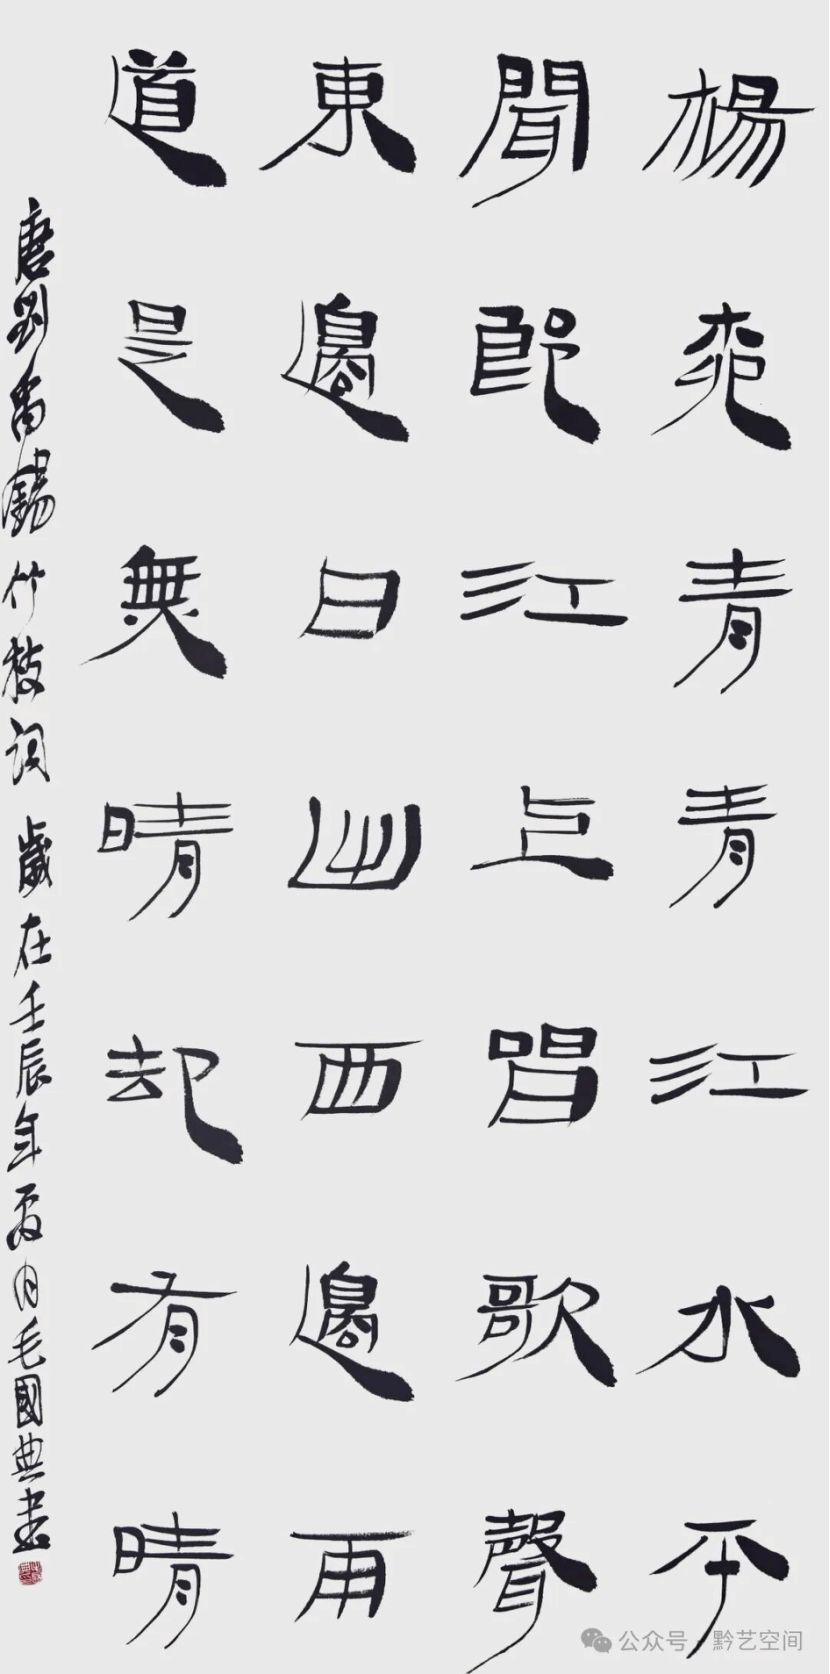 楊柳青青江水平
聞郎江上唱歌聲
東邊日出西邊雨
道是無晴却有晴
唐劉禹錫竹枝詞 歲在壬辰年夏月毛國典書
公众号 · 黔艺空间